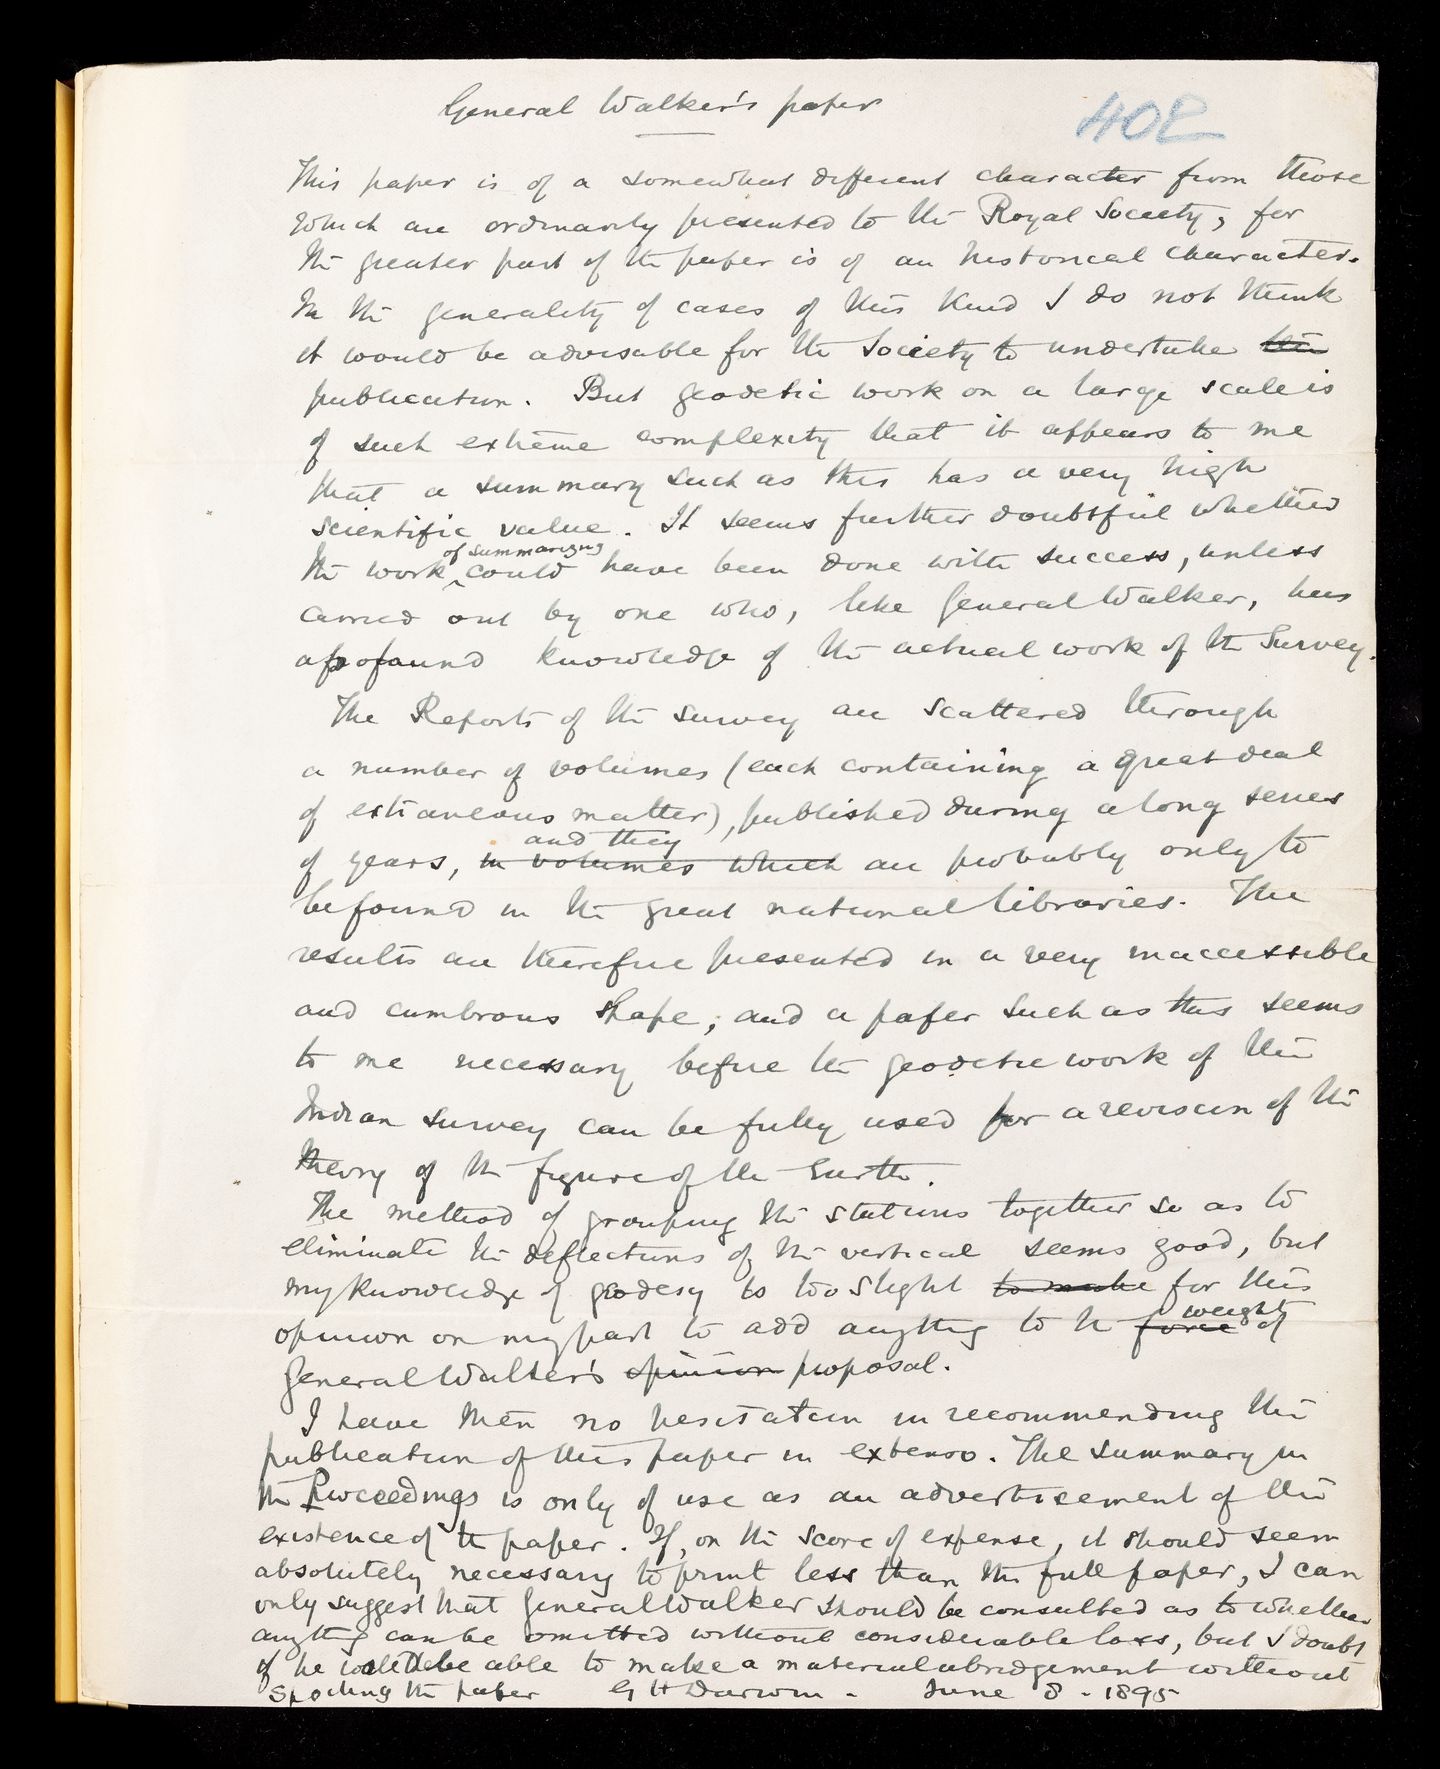 General Walker's paper
402
This paper is of a somewhat different character from those
which are ordinarily presented to the Royal Society, for
the greater part of the paper is of an historical character.
In the generality of cases of this kind I do not think
it would be advisable for the Society to undertake the
publication. But geodetic work on a large scale is
of such extreme complexity that it appears to me
that a summary such as this has a very high
scientific value. It seems further doubtful whether
of summarizing
the work could have been done with success, unless
carried out by one who, like General Walker, has
a profound knowledge of the actual work of the Survey.
The Reports of the survey are scattered through
a number of volumes (each containing a great deal
of extraneous matter), published during a long series
and they
of years, in volumes which are probably only to
be found in the great national libraries. The
results are therefore presented in a very inaccessible
and cumbrous shape, and a paper such as this seems
to me necessary before the geodetic work of the
Indian survey can be fully used for a revision of the
theory of the figure of the Earth.
The method of grouping the stations together so as to
eliminate the deflections of the vertical seems good, but
my knowledge of geodesy is too slight to make for this
weight
opinion on my part to add anything to the force of
General Walker's opinion proposal.
I have then no hesitation in recommending the
publication of this paper in extenso. The summary in
the Proceedings is only of use as an advertisement of the
existence of the paper. If, on the score of expense, it should seem
absolutely necessary to print less than the full paper, I can
only suggest that General Walker should be consulted as to whether
anything can be omitted without considerable loss, but I doubt
if he would be able to make a material abridgement without
spoiling the paper G H Darwin - June 8 - 1895